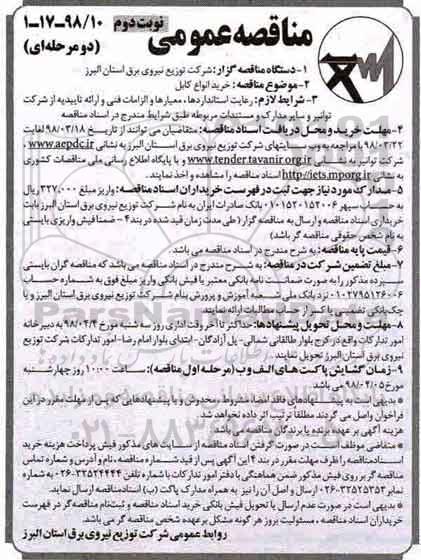 مناقصه عمومی
نوبت دوم
۱-۱۷-۹۸/۱۰
(دو مرحله‌ای)
۱- دستگاه مناقصه گزار: شرکت توزیع نیروی برق استان البرز
۲- موضوع مناقصه: خرید انواع کابل
۳- شرایط لازم: رعایت استانداردها، معیارها و الزامات فنی و ارائه تاییدیه از شرکت
توانیر و سایر مدارک و مستندات مربوطه طبق شرایط مندرج در اسناد مناقصه
۴- مهلت خرید و محل دریافت اسناد مناقصه: متقاضیان می توانند از تاریخ ۹۸/۰۳/۱۸ لغایت
۹۸/۰۳/۲۲ با مراجعه به وب سایتهای شرکت توزیع نیروی برق استان البرز به نشانی www.aepdc.ir،
شرکت توانیر به نشانی www.tender.tavanir.org.ir و یا پایگاه اطلاع رسانی ملی مناقصات کشوری
به نشانی http://iets.mporg.ir اسناد مناقصه را مشاهده و اخذ نمایند.
۵- مدارک مورد نیاز جهت ثبت در فهرست خریداران اسناد مناقصه: واریز مبلغ ۳۲۷,۰۰۰ ریال
به حساب سپهر ۰۱۰۱۵۲۰۱۵۲۰۰۶ بانک صادرات ایران به نام شرکت توزیع نیروی برق استان البرز بابت
خریداری اسناد مناقصه و ارسال به مناقصه گزار (طی مدت زمان قید شده در بند ۴ - ضمنا فیش واریزی بایستی
به نام شخص حقوقی مناقصه گر باشد)
۶- قیمت پایه مناقصه: به شرح مندرج در اسناد مناقصه می باشد.
۷- مبلغ تضمین شرکت در مناقصه: به شرح مندرج در اسناد مناقصه می باشد که مناقصه گران بایستی
سپرده مذکور را به صورت ضمانت نامه بانکی معتبر یا فیش بانکی واریز مبلغ فوق به شماره حساب
۰۱۰۲۷۹۵۱۲۶۰۰۶ نزد بانک ملی شعبه آموزش و پرورش بنام شرکت توزیع نیروی برق استان البرز و یا
چک بانکی تضمینی یا کسر از حساب مطالبات ارائه نمایند.
۸- مهلت و محل تحویل پیشنهادها: حداکثر تا آخر وقت اداری روز سه شنبه مورخ ۹۸/۰۴/۰۴ به دبیرخانه
امور تدارکات واقع در کرج بلوار طالقانی شمالی- پل آزادگان- ابتدای بلوار امام رضا- امور تدارکات شرکت توزیع
نیروی برق استان البرز تحویل نمایند.
۹- زمان گشایش پاکت های الف و ب (مرحله اول مناقصه): ساعت ۱۰:۰۰ روز چهارشنبه
مورخ ۹۸/۰۴/۰۵ می باشد.
بدیهی است به پیشنهادهای فاقد امضا، مشروط، مخدوش و یا پیشنهادهایی که پس از مهلت مقرر در این
فراخوان واصل می گردند مطلقا ترتیب اثر داده نخواهد شد.
هزینه آگهی بر عهده برنده یا برندگان مناقصه می باشد.
متقاضی موظف است در صورت گرفتن اسناد مناقصه از سایت های مذکور فیش پرداخت هزینه خرید
اسناد مناقصه را ظرف مهلت مقرر در بند ۴ این آگهی پس از قید شماره مناقصه، نام و آدرس و شماره تماس
مناقصه گر بر روی فیش مذکور ضمن هماهنگی با دفتر امور تدارکات با شماره تلفن ۳۲۵۲۴۴۴۴-۰۲۶ به شماره
تماس ۳۲۵۲۵۳۵۳-۰۲۶ ارسال و اصل آن را نیز به همراه مدارک پاکت (ب) اسناد مناقصه ارسال نماید.
بدیهی است در صورت عدم ارسال یا تحویل فیش بانکی خرید اسناد مناقصه و ثبت نام مناقصه گر در فهرست
خریداران اسناد مناقصه، مسئولیت بروز هر گونه مشکل بر عهده شخص مناقصه گر می باشد.
روابط عمومی شرکت توزیع نیروی برق استان البرز